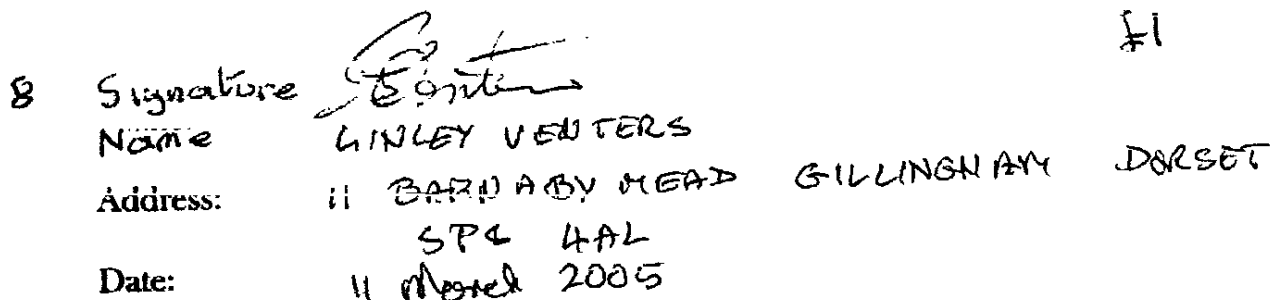 £1
8 Signature
Name LINLEY VENTERS
Address: 11 BARNABY MEAD GILLINGHAM DORSET
SP8 4AL
Date: 11 March 2005